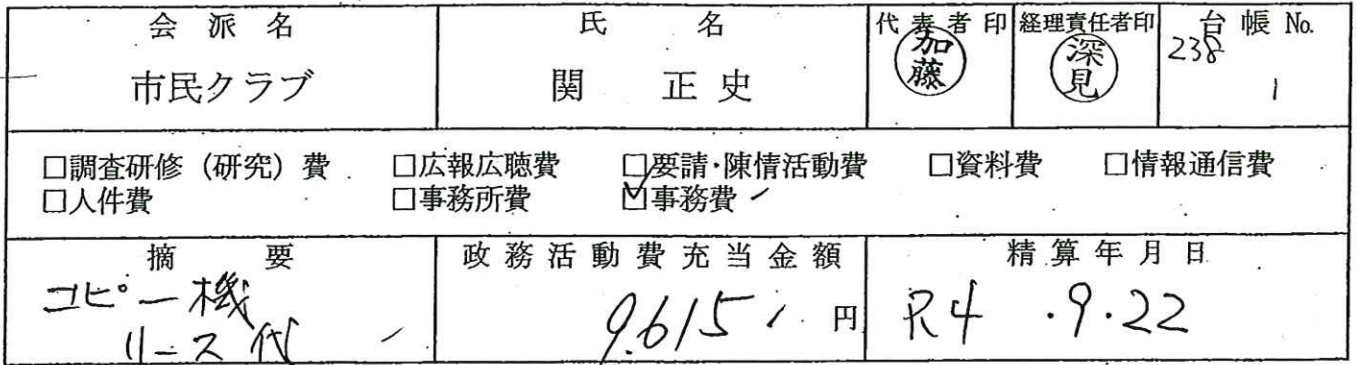 会派名 氏名 代表者印 経理責任者印 台帳 No.
市民クラブ 関 正史 加藤 深見 238 1
□調査研修（研究）費 □広報広聴費 □要請・陳情活動費 □資料費 □情報通信費
□人件費 □事務所費 ☑事務費
摘要 政務活動費充当金額 精算年月日
コピー機
リース代 9,615 円 R4・9・22